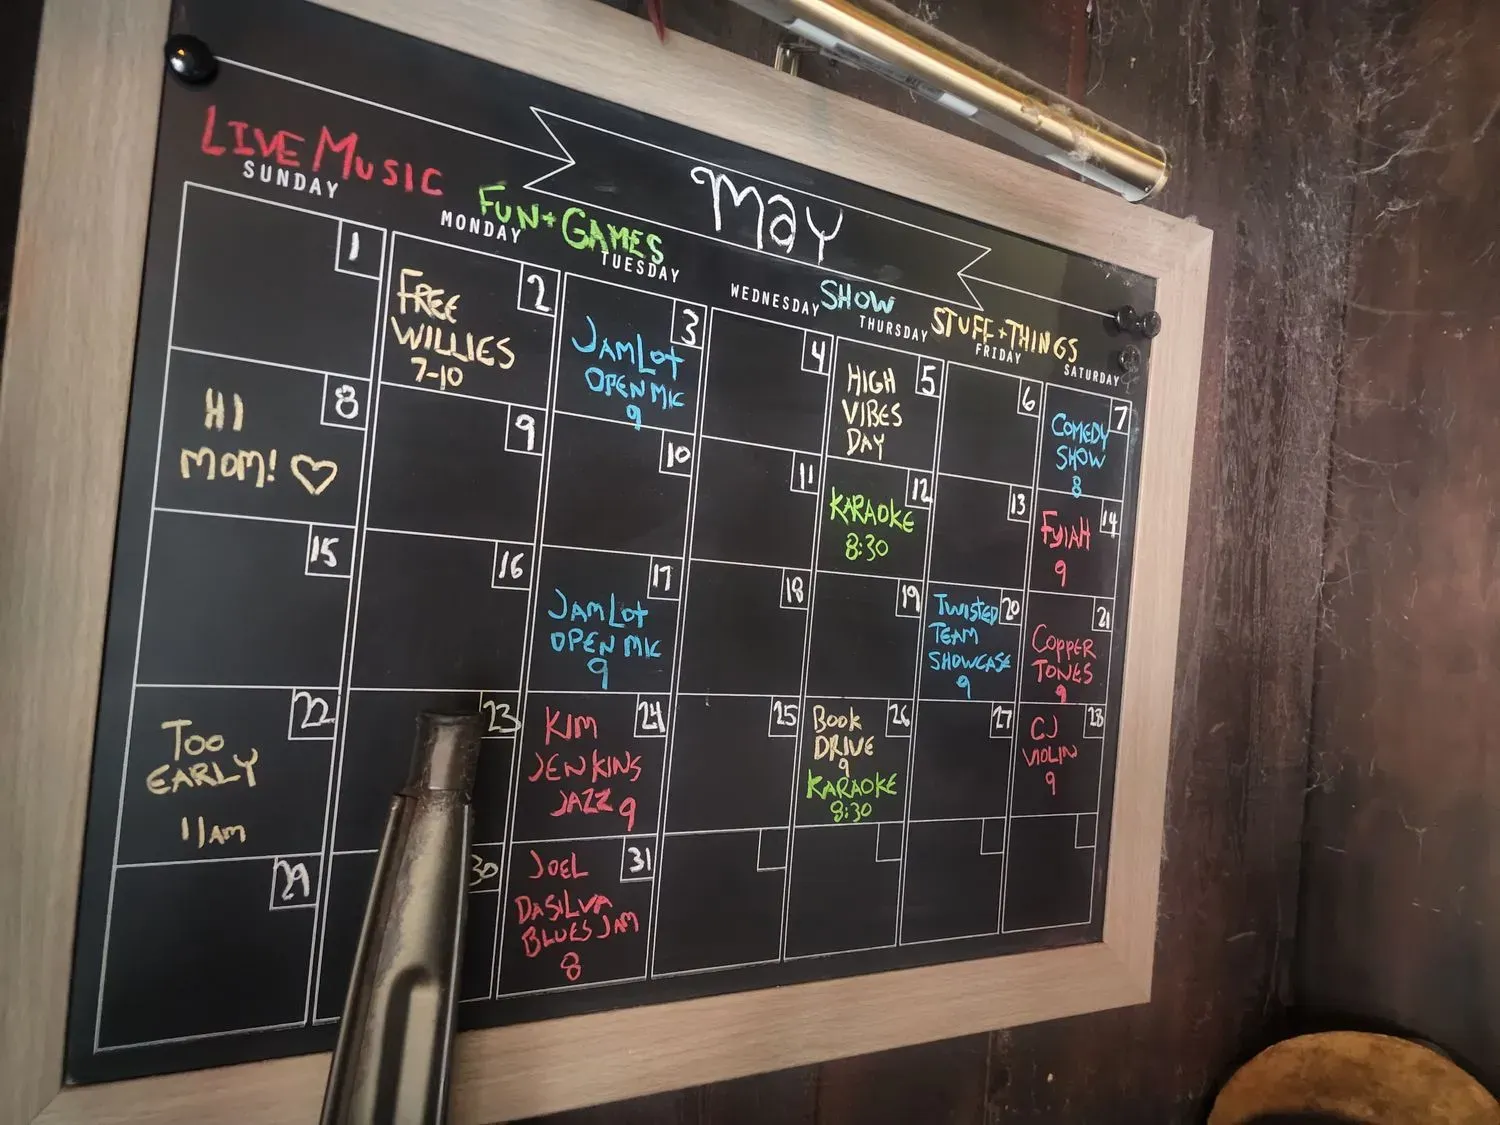 MAY
LIVE MUSIC
FUN + GAMES
SHOW
STUFF + THINGS
SUNDAY
MONDAY
TUESDAY
WEDNESDAY
THURSDAY
FRIDAY
SATURDAY
1
2
FREE
WILLIES
7-10
3
JAMLOT
OPEN MIC
9
4
5
HIGH
VIBES
DAY
6
7
COMEDY
SHOW
8
8
HI
MOM! ♡
9
10
11
12
KARAOKE
8:30
13
14
FYIAH
9
15
16
17
JAMLOT
OPEN MIC
9
18
19
20
TWISTED
TEAM
SHOWCASE
9
21
COPPER
TONES
9
22
TOO
EARLY
11AM
23
24
KIM
JENKINS
JAZZ 9
25
26
BOOK
DRIVE
9
KARAOKE
8:30
27
28
CJ
VIOLIN
9
29
30
31
JOEL
DASILVA
BLUES JAM
8